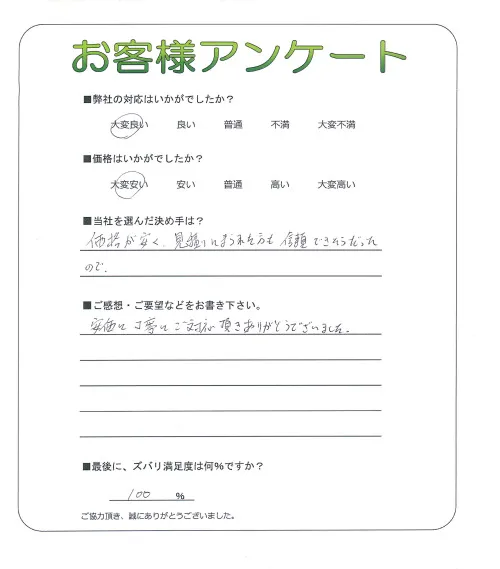 お客様アンケート
■弊社の対応はいかがでしたか？
大変良い 良い 普通 不満 大変不満
■価格はいかがでしたか？
大変安い 安い 普通 高い 大変高い
■当社を選んだ決め手は？
価格が安く、見積にこられた方も信頼できそうだった
ので。
■ご感想・ご要望などをお書き下さい。
安価で丁寧にご対応頂きありがとうございました。
■最後に、ズバリ満足度は何%ですか？
100 %
ご協力頂き、誠にありがとうございました。